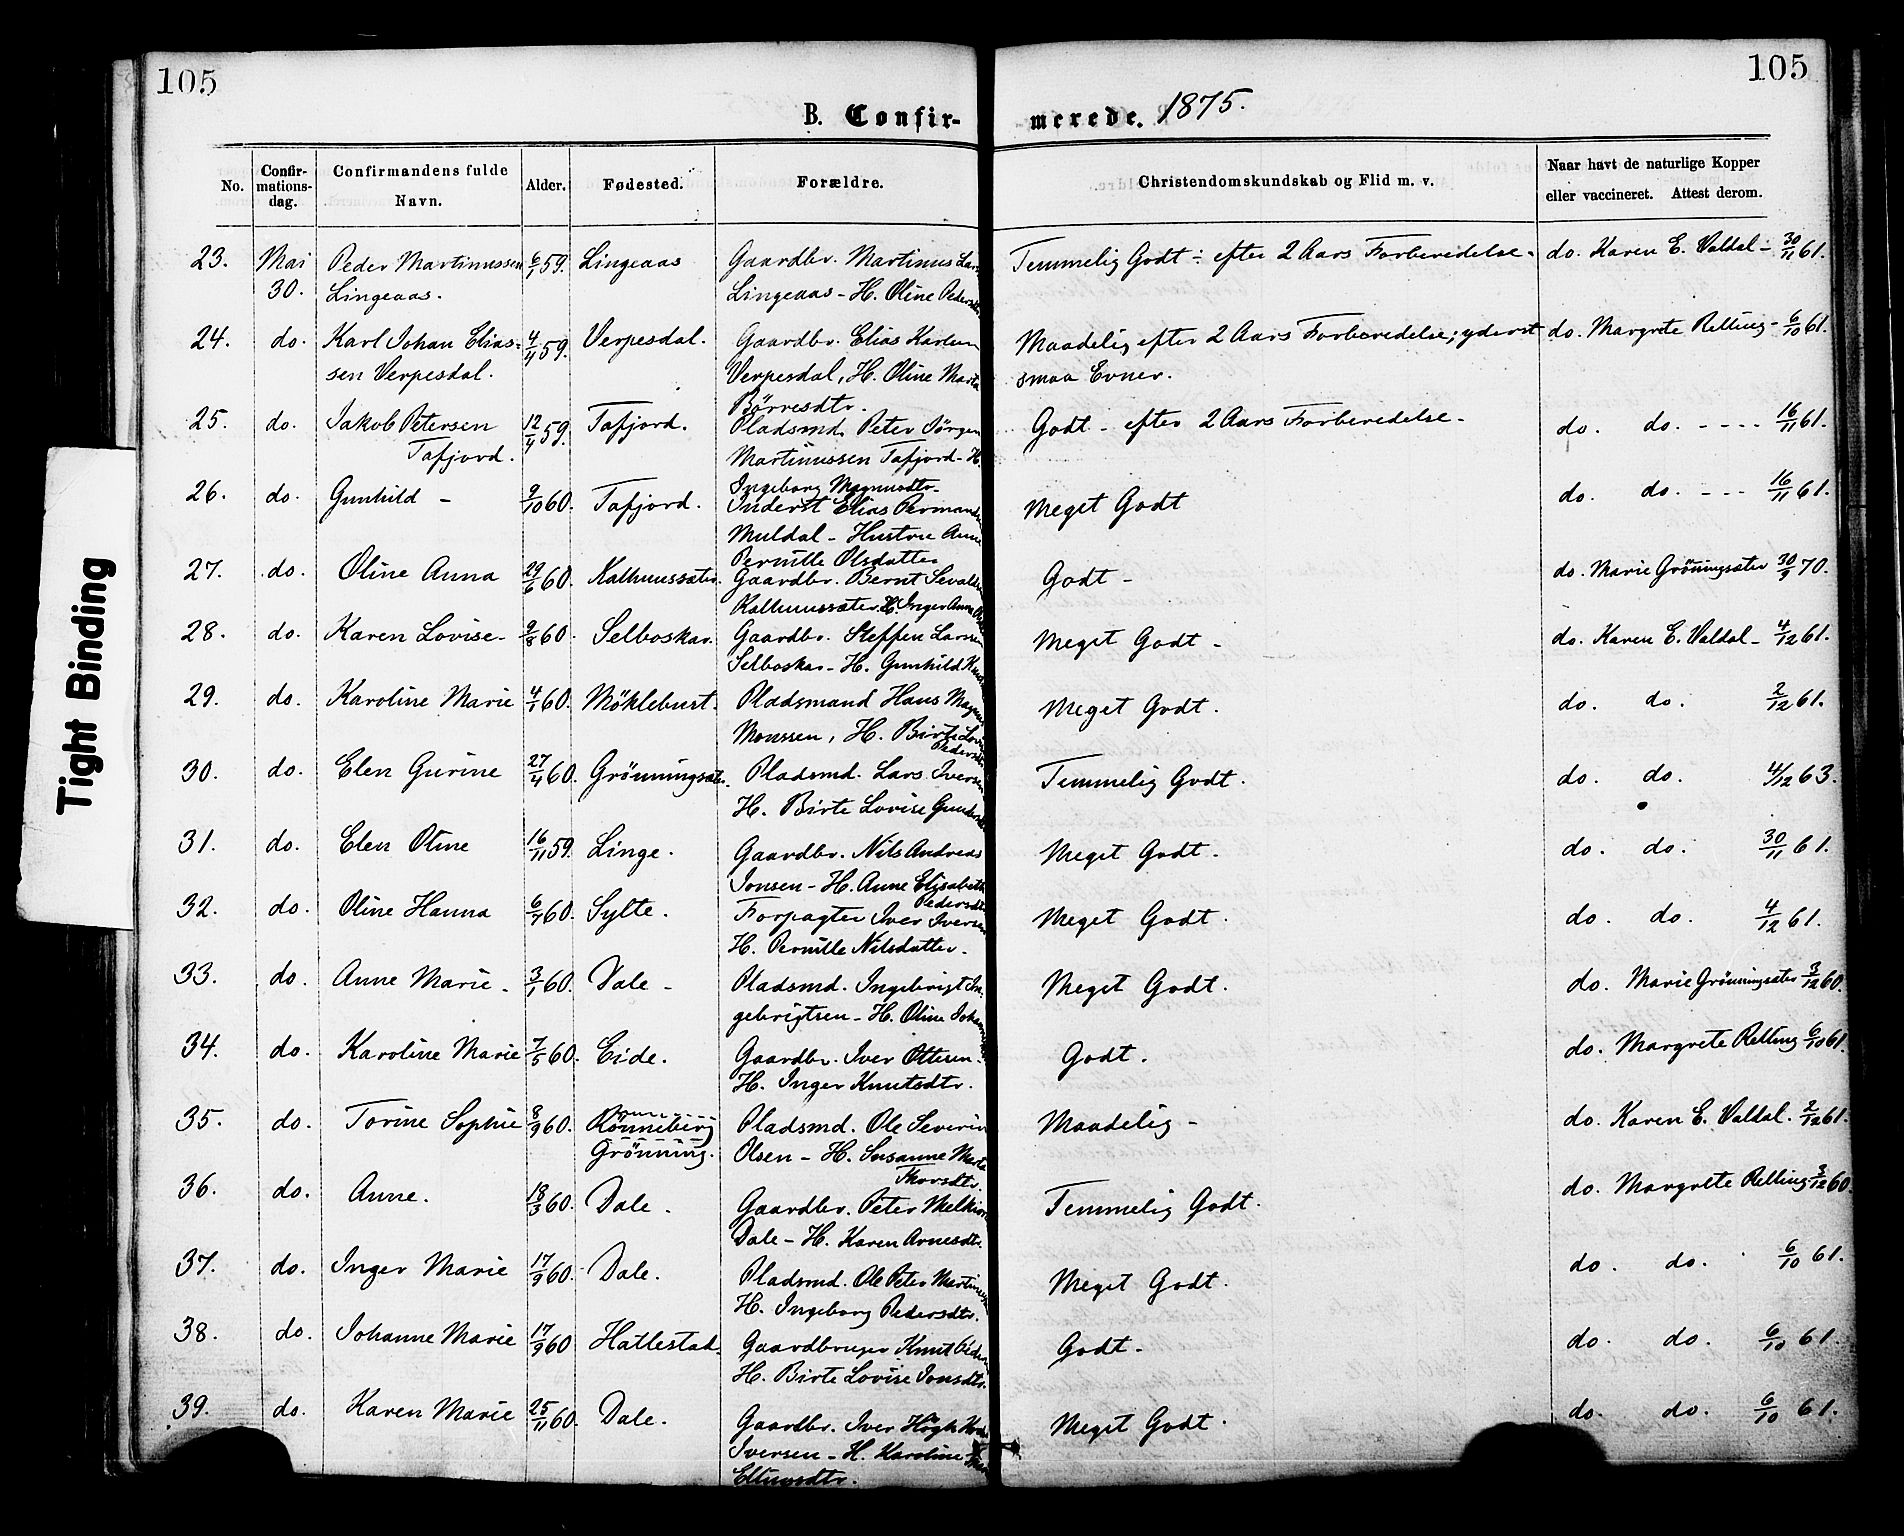 105
105
B. Confir- merede. 1875.
No. Confir-mations-dag. Confirmandens fulde Navn. Alder. Fødested. Forældre. Christendomskundskab og Flid m. v. Naar havt de naturlige Kopper eller vaccineret. Attest derom.
23. Mai Peder Martinussen 6/1 59. Lingeaas Gaardbr. Martinus Lars Temmelig Godt ÷ efter 2 Aars Forberedelse. do. Karen E. Valdal - 30/11 61.
30. Lingeaas. Lingeaas - H. Oline Pedersdtr
24. do. Karl Johan Elias- 4/4 59. Verpesdal. Gaardbr. Elias Karlsen Maadelig efter 2 Aars Forberedelse; yderst do. Margrete Relling - 6/10 61.
sen Verpesdal. Verpesdal, H. Oline Marta smaa Evner.
Börresdtr.
25. do. Jakob Petersen 12/4 59. Tafjord. Pladsmd. Peter Jörgen Godt - efter 2 Aars Forberedelse - do. do. - - - - 16/11 61.
Tafjord. Martinussen Tafjord - H.
Ingeborg Magnusdtr.
26. do. Gunhild - 9/10 60. Tafjord. Inderst Elias Meget Godt do. do. - - - 16/11 61.
Muldal - Hustru Anne
Pernille Olsdatter
27. do. Oline Anna 29/6 60. Kalhussæter. Gaardbr. Bernt Sevalds Godt - do. Marie Grönningsæter 30/9 70.
Kalhussæter. H. Inger Anne
28. do. Karen Lovise - 9/8 60. Selboskar. Gaardbr. Steffen Larsen Meget Godt - do. Karen E. Valdal - 4/12 61.
Selboskar - H. Gunhild
29. do. Karoline Marie 4/1 60. Möklebust. Pladsmand Hans Magnus Meget Godt. do. do. 2/12 61.
Monssen, H. Birte Lovise
Pedersdtr
30. do. Elen Gurine 27/4 60. Grönningsæt. Pladsmd. Lars Iversen Temmelig Godt. do. do. 4/12 63.
H. Birte Lovise
31. do. Elen Oline 16/11 59. Linge. Gaardbr. Nils Andreas Meget Godt. do. do. 30/11 61.
Jonsen - H. Anne Elisabeth
Pedersdtr
32. do. Oline Hanna 6/4 60. Sylte. Forpagter Iver Iversen Meget Godt. do. do. 4/12 61.
H. Pernille Nilsdatter.
33. do. Anne Marie - 3/1 60. Dale - Pladsmd. Ingebrigt In- Meget Godt. do. Marie Grönningsæter 3/12 60.
gebrigtsen - H. Oline
34. do. Karoline Marie 7/5 60. Eide. Gaardbr. Iver Ottesen - Godt. do. Margrete Relling 6/10 61.
H. Inger Knutsdtr.
35. do. Torine Sophie 8/9 60. Rönneberg Pladsmd. Ole Severin Maadelig - do. Karen E. Valdal. 2/12 61.
Grönning. Olsen - H. Susanne Marta
Thorsdtr.
36. do. Anne. 18/3 60. Dale. Gaardbr. Peter Melkior Temmelig Godt. do. Margrete Relling 3/12 60.
Dale - H. Karen Arnesdtr.
37. do. Inger Marie 17/9 60. Dale. Pladsmd. Ole Peter Martinussen Meget Godt. do. do. 6/10 61.
H. Ingeborg Pedersdtr.
38. do. Johanne Marie 17/9 60 Hattestad. Gaardbruger Knut Godt. do. do. 6/10 61.
H. Birte Lovise Jonsdtr.
39. do. Karen Marie 25/11 60. Dale. Gaardbr. Iver Högh Meget Godt. do. do. 6/10 61.
Iversen - H. Karoline
Ellingsdtr.
Tight Binding